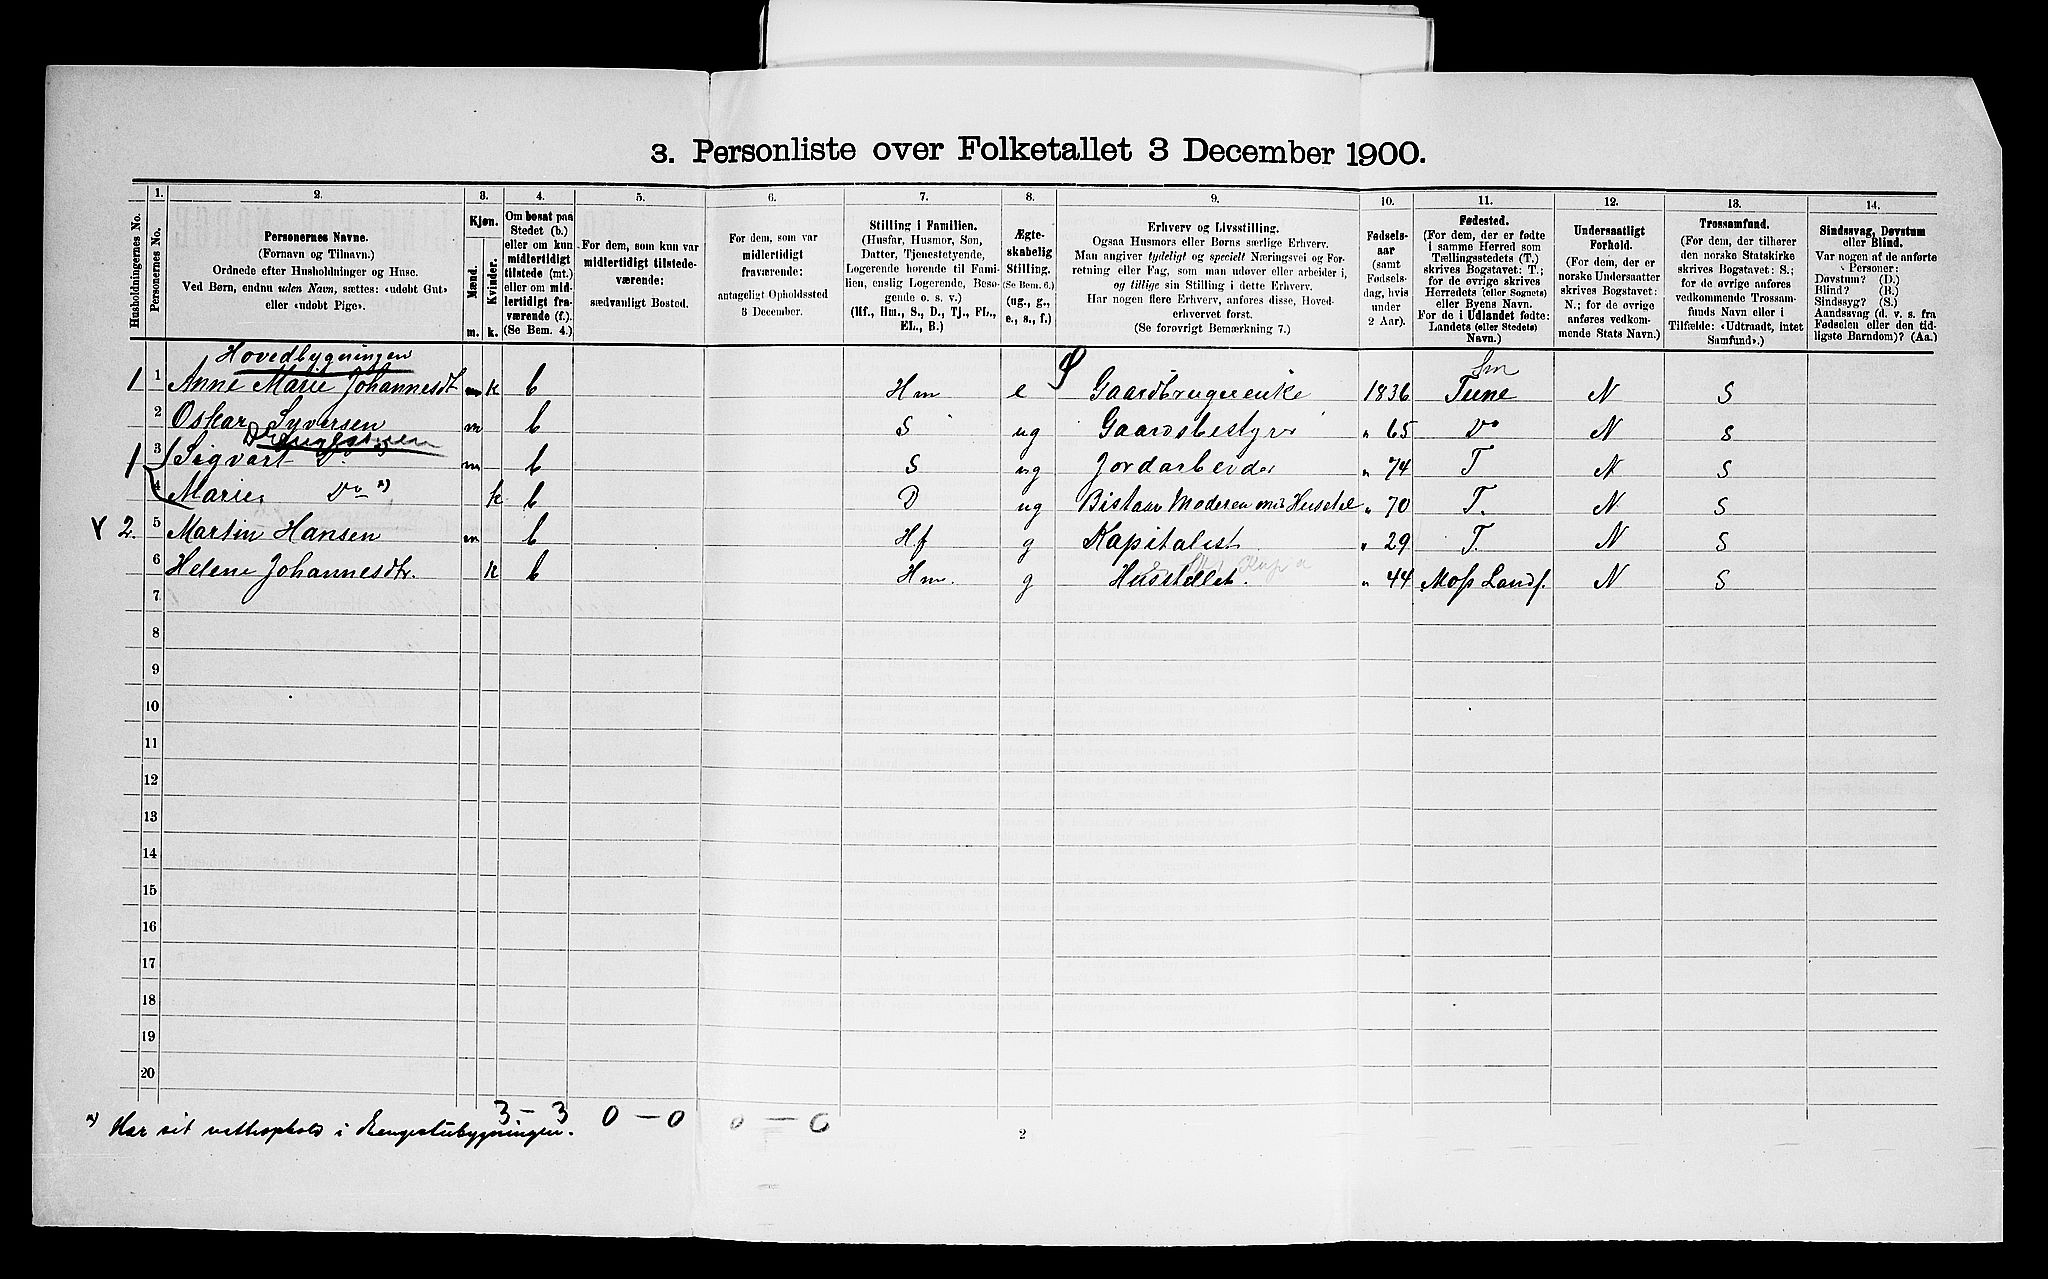 3. Personliste over Folketallet 3 December 1900.
Husholdningernes No.
1.
Personernes No.
2.
Personernes Navne.
(Fornavn og Tilnavn.)
Ordnede efter Husholdninger og Huse.
Ved Børn, endnu uden Navn, sættes: «udøbt Gut»
eller «udøbt Pige».
3.
Kjøn.
Mænd.
m.
Kvinder.
k.
4.
Om bosat paa
Stedet (b.)
eller om kun
midlertidigt
tilstede (mt.)
eller om mid-
lertidigt fra-
værende (f.).
(Se Bem. 4.)
5.
For dem, som kun var
midlertidigt tilstede-
værende:
sædvanligt Bosted.
6.
For dem, som var
midlertidigt
fraværende:
antageligt Opholdssted
3 December.
7.
Stilling i Familien.
(Husfar, Husmor, Søn,
Datter, Tjenestetyende,
Logerende hørende til Fami-
lien, enslig Logerende, Besø-
gende o. s. v.)
(Hf., Hm., S., D., Tj., FL.,
EL., B.)
8.
Ægte-
skabelig
Stilling.
(Se Bem. 6.)
(ug., g.,
e., s., f.)
9.
Erhverv og Livsstilling.
Ogsaa Husmors eller Børns særlige Erhverv.
Man angiver tydeligt og specielt Næringsvei og For-
retning eller Fag, som man udøver eller arbeider i,
og tillige sin Stilling i dette Erhverv.
Har nogen flere Erhverv, anføres disse, Hoved-
erhvervet først.
(Se forøvrigt Bemærkning 7.)
10.
Fødsels-
aar
(samt
Fødsels-
dag, hvis
under
2 Aar).
11.
Fødested.
(For dem, der er fødte
i samme Herred som
Tællingsstedets (T.)
skrives Bogstavet: T.;
for de øvrige skrives
Herredets (eller Sognets)
eller Byens Navn.
For de i Udlandet fødte:
Landets (eller Stedets)
Navn.)
12.
Undersaatligt
Forhold.
(For dem, der er
norske Undersaatter
skrives Bogstavet:
N.; for de øvrige
anføres vedkom-
mende Stats Navn.)
13.
Trossamfund.
(For dem, der tilhører
den norske Statskirke
skrives Bogstavet: S.;
for de øvrige anføres
vedkommende Trossam-
funds Navn eller i
Tilfælde: «Udtraadt, intet
Samfund».)
14.
Sindssvag, Døvstum
eller Blind.
Var nogen af de anførte
Personer:
Døvstum? (D.)
Blind? (B.)
Sindssyg? (S.)
Aandssvag (d. v. s. fra
Fødselen eller den tid-
ligste Barndom)? (Aa.)
Hovedbygningen
1 1 Anne Marie Johannesdt m k b Hm e Gaardbrugerenke 1836 Tune N S
2 Oskar Syversen m b S ug Gaardsbestyrer " 65 Do N S
1 3 Sigvart Do m b S ug Jordarbeider " 74 T N S
4 Marie Do x) k b D ug Bistaar Moderen med Husstel " 70 T. N S
2. 5 Martin Hansen m b Hf g Kapitalist " 29 T. N S
6 Helene Johannesdtr. k b Hm. g Husstellet. " 44 Moss Lands. N S
7
8
9
10
11
12
13
14
15
16
17
18
19
20
3 – 3 0 – 0 0 – 0
x) Har sit natteophold i Drengestubygningen.
2